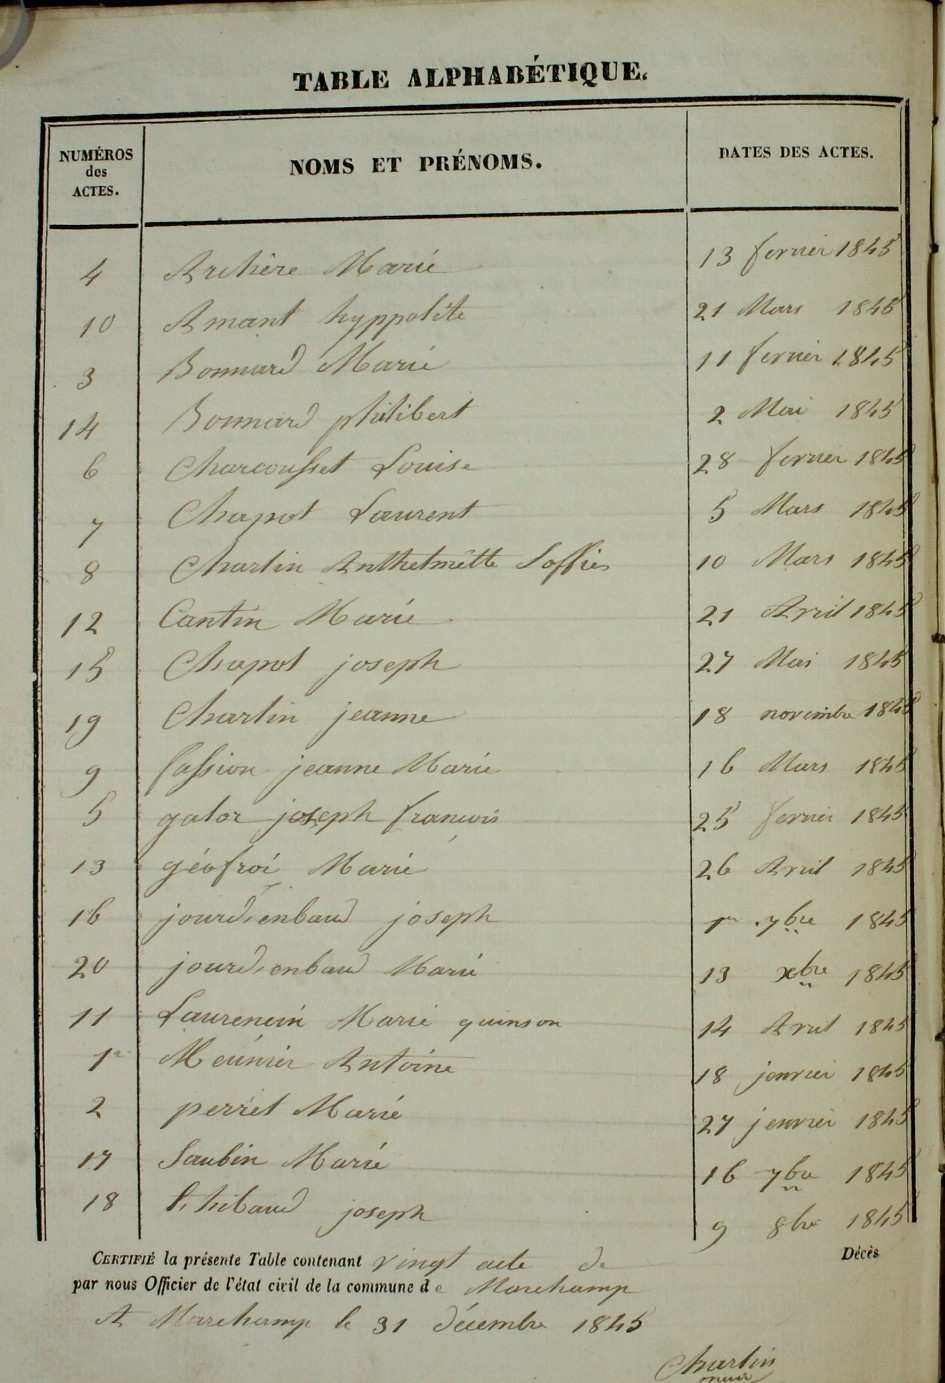 TABLE ALPHABÉTIQUE.
NUMÉROS des ACTES. NOMS ET PRÉNOMS. DATES DES ACTES.
4 Archère Marie 13 fevrier 1845
10 Amant hyppolite 21 Mars 1845
3 Bonnard Marie 11 fevrier 1845
14 Bonnard philibert 2 Mai 1845
6 Charcousset Louise 28 fevrier 1845
7 Chapot Laurent 5 Mars 1845
8 Charlin Anthelmette Soffies 10 Mars 1845
12 Cantin Marie 21 Avril 1845
15 Chapot joseph 27 Mai 1845
19 Charlin jeanne 18 novembre 1845
9 fassion jeanne Marie 16 Mars 1845
5 galor joseph francois 25 fevrier 1845
13 géofroi Marie 26 Avril 1845
16 jourdienbaud joseph 1er 7bre 1845
20 jourdienbaud Marie 13 xbre 1845
11 Laurencin Marie quinson 14 Avril 1845
1er Meúnier Antoine 18 jenvier 1845
2 perret Marie 27 jenvier 1845
17 Saubin Marie 16 7bre 1845
18 thibaud joseph 9 8bre 1845
CERTIFIÉ la présente Table contenant vingt acte de Décès
par nous Officier de l'état civil de la commune de Marchamp
A Marchamp le 31 décembre 1845
Charlin
maire